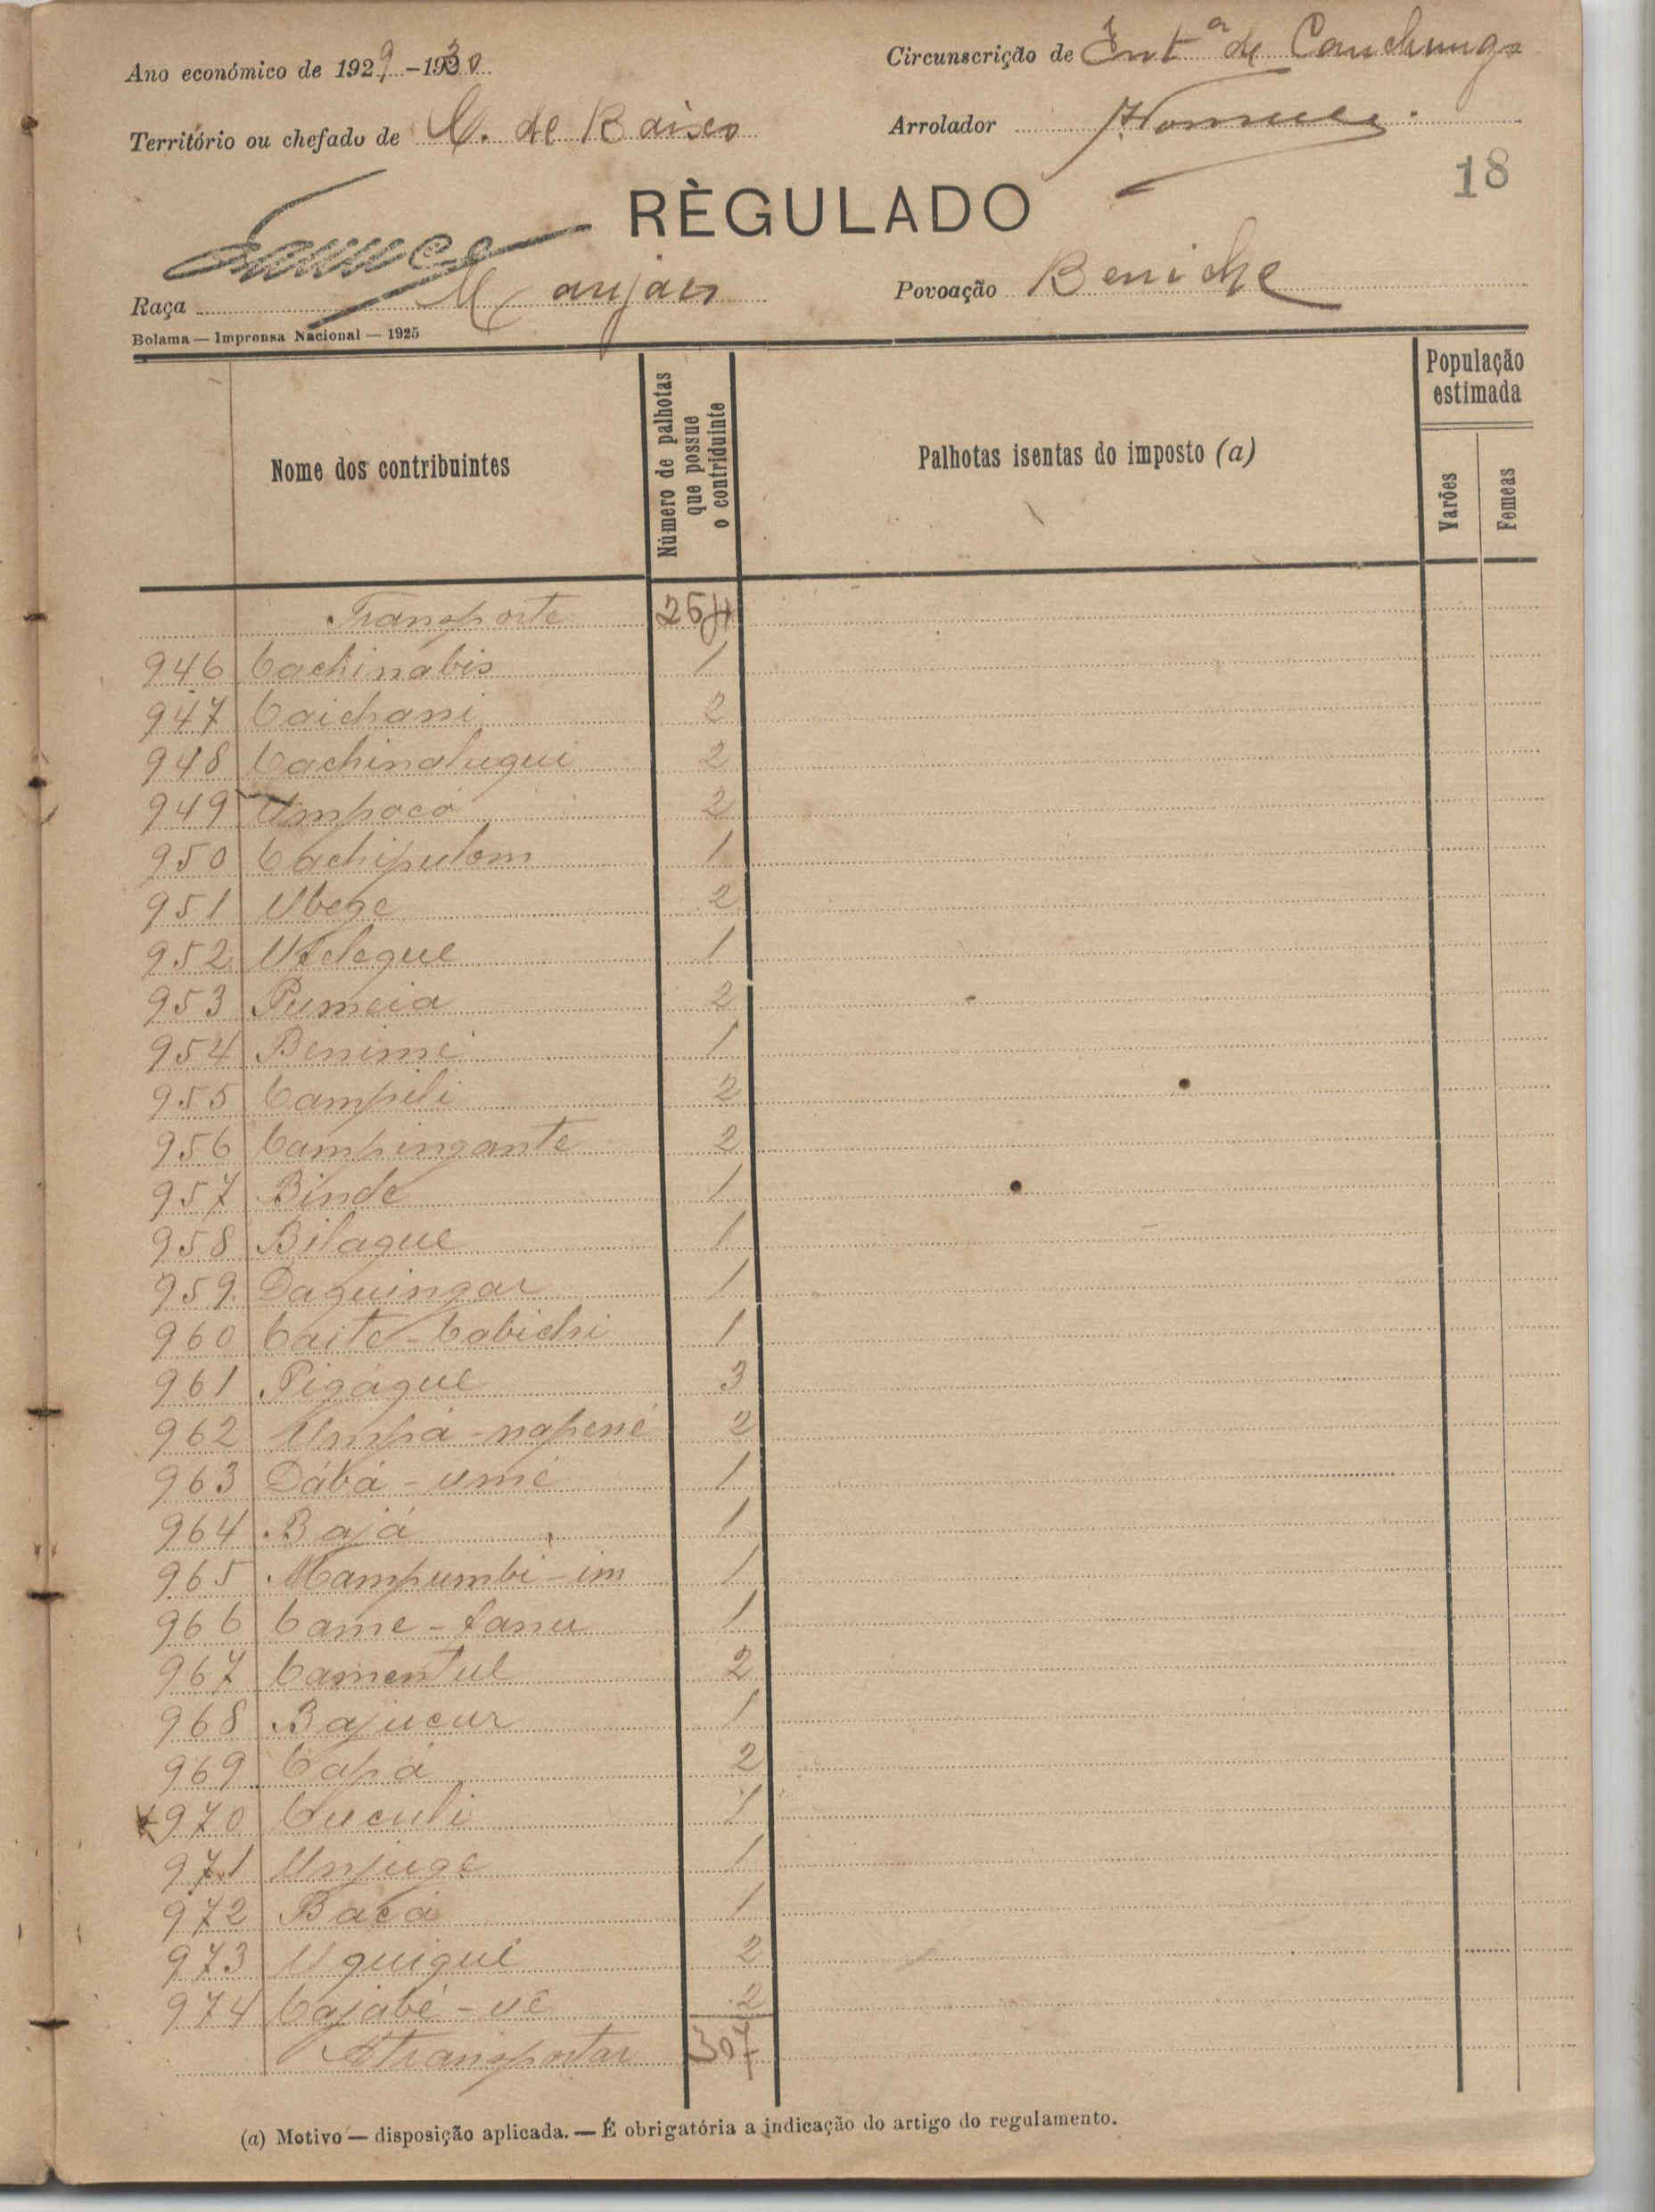 Ano económico de 1929-1930
Circunscrição de Intª de Canchungo
Território ou chefado de C. de Baixo
Arrolador
18
RÈGULADO
Raça Manjaco
Povoação Beniche
Bolama — Imprensa Nacional — 1925
Nome dos contribuintes
Número de palhotas que possue o contriduinte
Palhotas isentas do imposto (a)
População estimada
Varões
Femeas
Transporte 264
946 Cachinabis 1
947 Caichani 2
948 Cachinalugui 2
949 Umpocó 2
950 Cachipulom 1
951 Ubege 2
952 Utelegue 1
953 Pumeia 2
954 Benime 1
955 Campili 2
956 Campingante 2
957 Binde 1
958 Bilague 1
959 Daguingar 1
960 Caite-Cabichi 1
961 Pigágue 3
962 Umpá-napené 2
963 Dábá-umé 1
964 Bajá 1
965 Mampumbi-im 1
966 Came-tanu 1
967 Camentul 2
968 Bajucur 1
969 Capá 2
970 Cuculi 1
971 Unjuge 1
972 Bacá 1
973 Uquigue 2
974 Cajabé-uê 2
A transportar 307
(a) Motivo — disposição aplicada. — É obrigatória a indicação do artigo do regulamento.